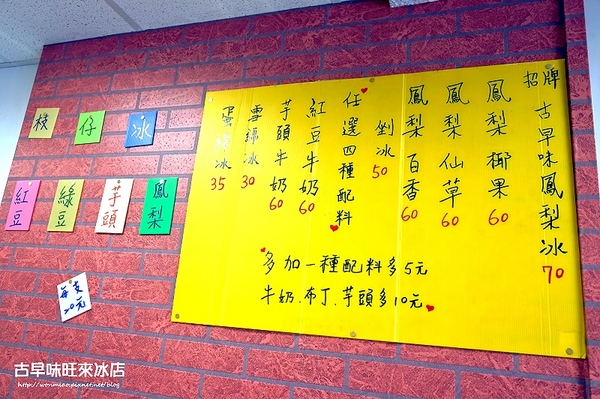 招牌 古早味鳳梨冰 70
鳳梨椰果 60
鳳梨仙草 60
鳳梨百香 60
剉冰 50
任選四種配料
紅豆牛奶 60
芋頭牛奶 60
雪綿冰 30
冰 35
多加一種配料多5元
牛奶、布丁、芋頭多10元
枝仔冰
紅豆
綠豆
芋頭
鳳梨
每支
20元
古早味旺來冰店
http://wonmiao.pixnet.net/blog